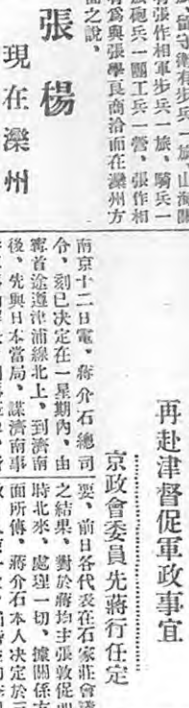 留守灤有步兵一旅、山海關
有張作相軍步兵一旅、騎兵一
旅砲兵一團工兵一營、張作相
有爲與張學良商洽而在灤州方
面之說、
張楊
現在灤州
再赴津督促軍政事宜
京政會委員先蔣行任定
南京十二日電、蔣介石總司
令、刻已決定在一星期內、由
寧首途遵津浦線北上、到濟南
後、先與日本當局、謀濟南事
要、前日各代表在石家莊會議
之結果、對於蔣均主張敦促
時北來、處理一切、據關係方
面所傳、蔣介石本人決定於